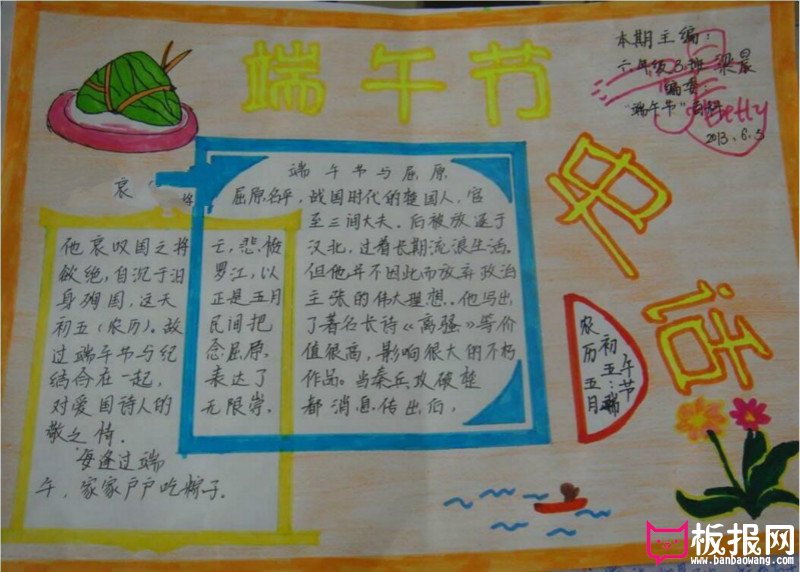 端午节
史话
本期主编：
六年级3班 梁晨
编委：
"端午节"百科
Betty
2013.6.5
端午节与屈原
屈原名平，战国时代的楚国人，官
至三闾大夫。后被放逐于
汉北，过着长期流浪生活。
但他并不因此而放弃政治
主张的伟大理想。他写出
了著名长诗《离骚》等价
值很高，影响很大的不朽
作品。当秦兵攻破楚
都消息传出后，
哀
他哀叹国之将亡，悲愤
欲绝，自沉于汨罗江，以
身殉国，这天正是五月
初五（农历）。故民间把
过端午节与纪念屈原
结合在一起，表达了
对爱国诗人的无限崇
敬之情．
每逢过端
午，家家户户吃粽子．
农历五月
初五：端
午节
板报网
www.banbaowang.com